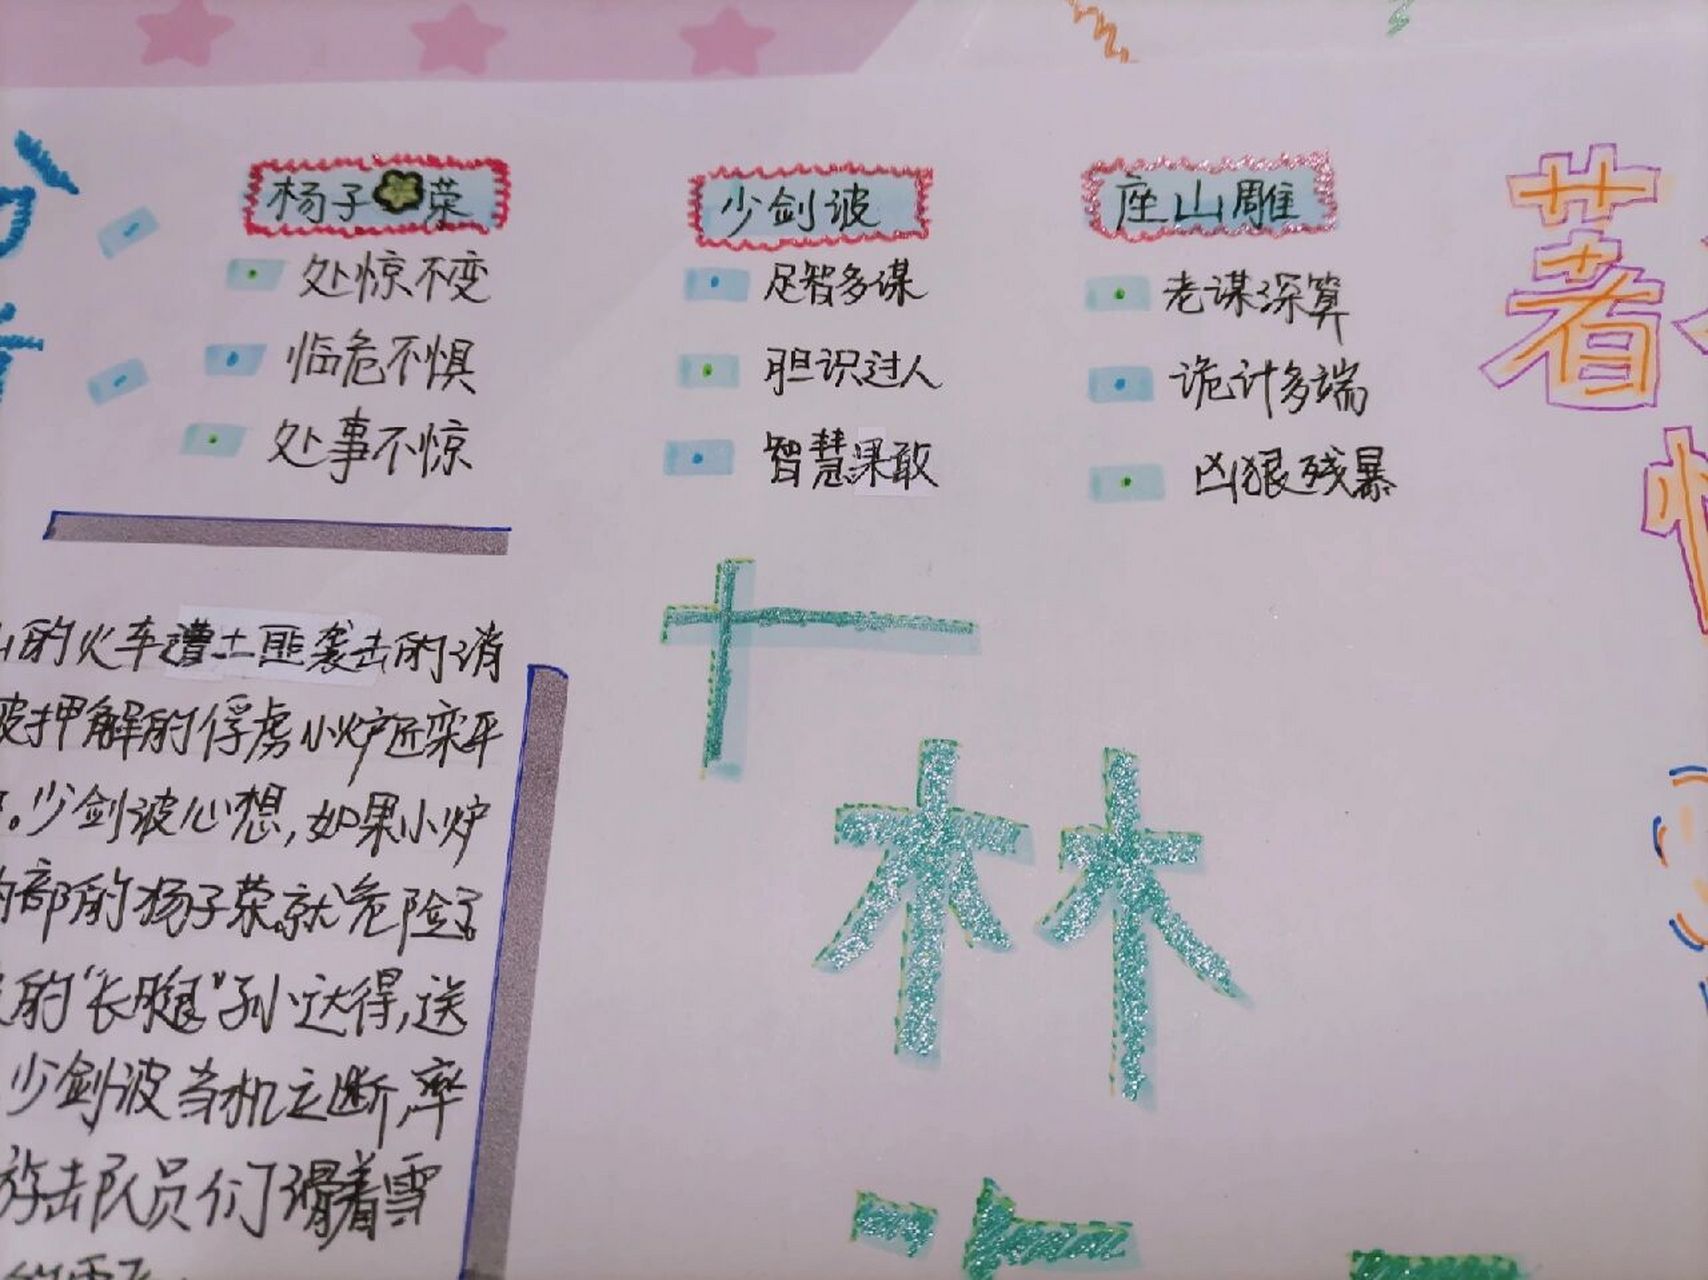 杨子荣
处惊不变
临危不惧
处事不惊
少剑波
足智多谋
胆识过人
智慧果敢
座山雕
老谋深算
诡计多端
凶狠残暴
著
林
的火车遭土匪袭击的消
押解的俘虏小炉匠栾平
。少剑波心想,如果小炉
部的杨子荣就危险了
的“长腿”孙达得,送
少剑波当机立断,率
击队员们滑着雪